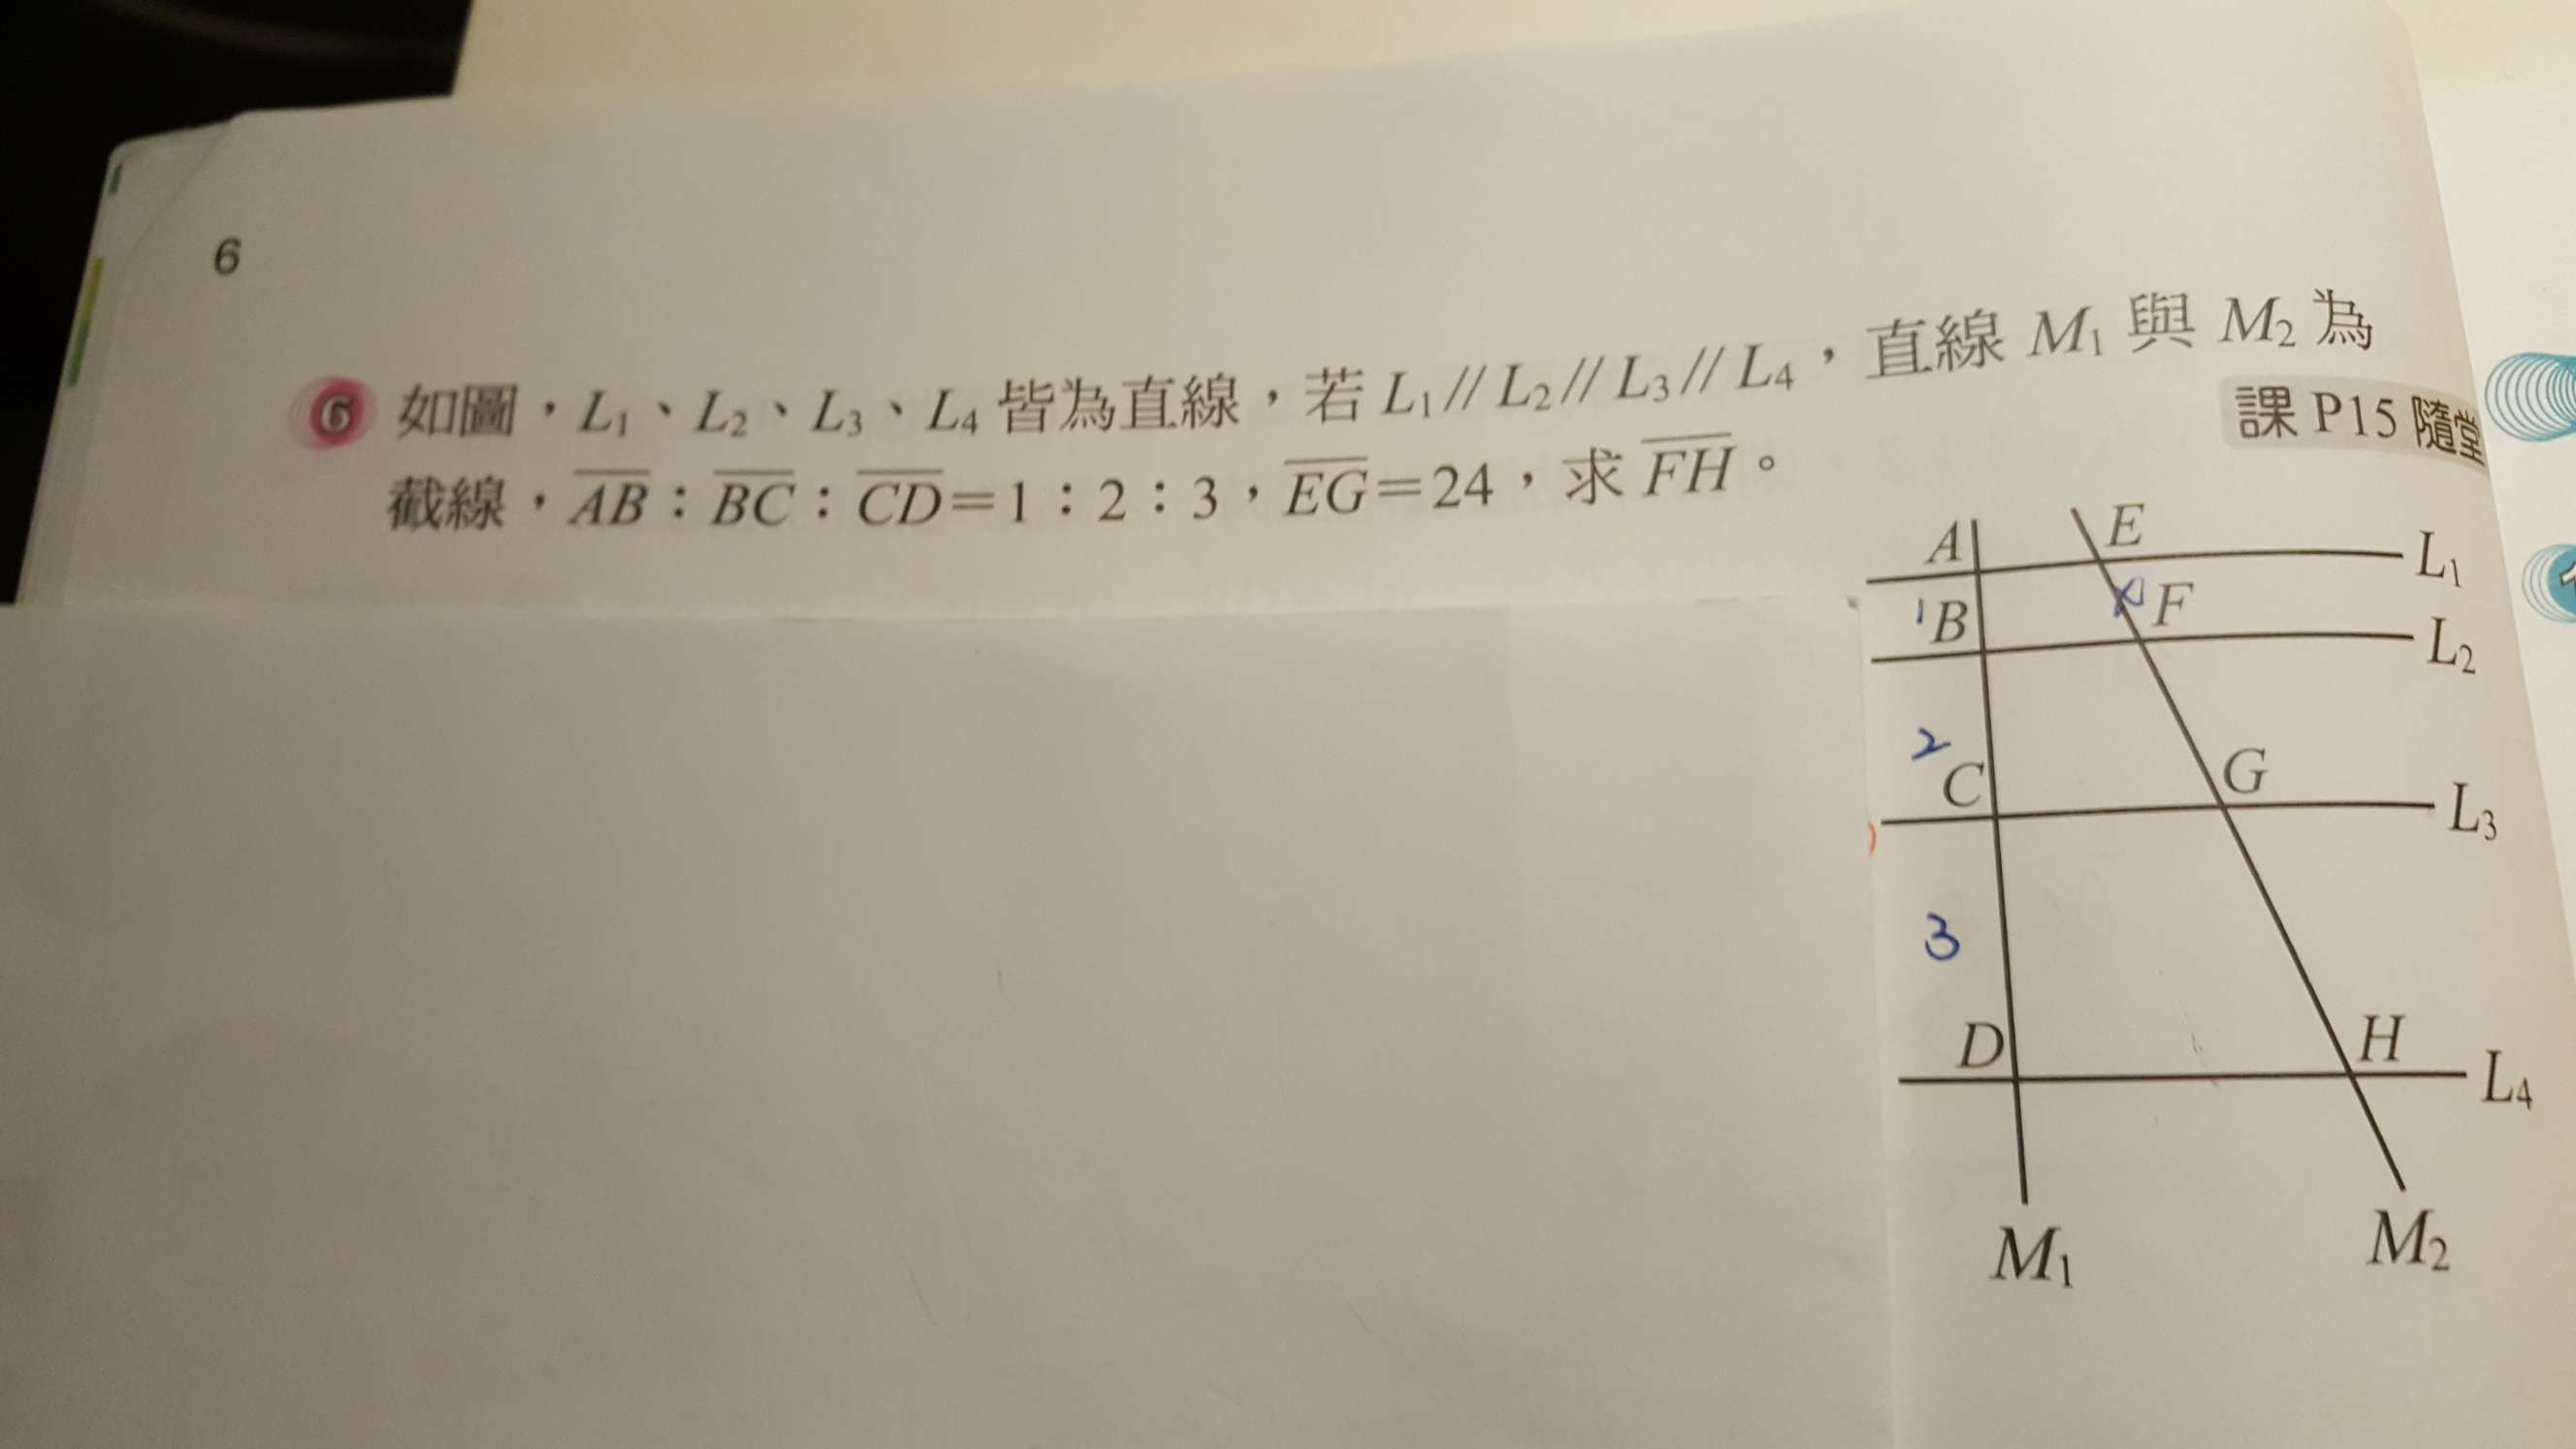 6
6 如圖，L₁、L₂、L₃、L₄ 皆為直線，若 L₁∥L₂∥L₃∥L₄，直線 M₁ 與 M₂ 為
截線，AB：BC：CD＝1：2：3，EG＝24，求 FH。
課 P15 隨堂
A E L₁
1 B x F L₂
2
C G L₃
3
D H L₄
M₁ M₂